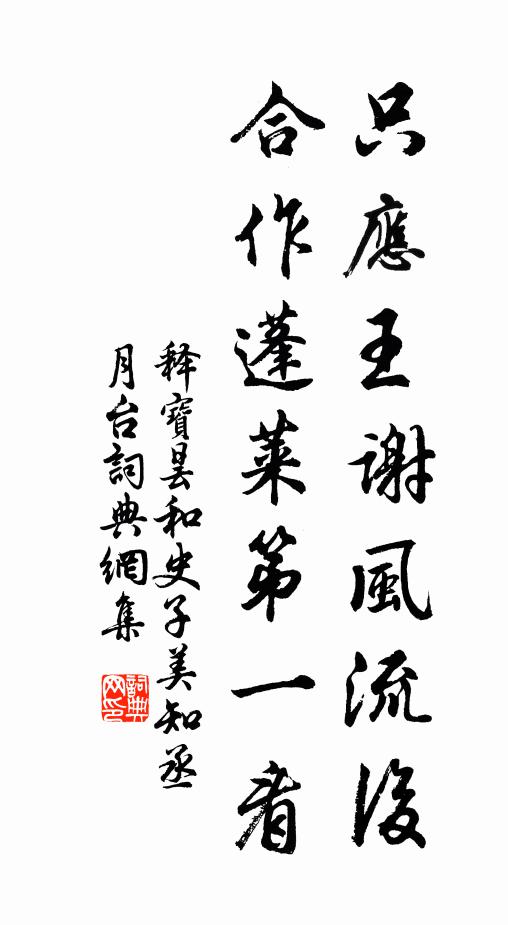 只應王謝風流後
合作蓬萊第一看
释寶曇和史子美知丞
月台詞典網集
詞典网印